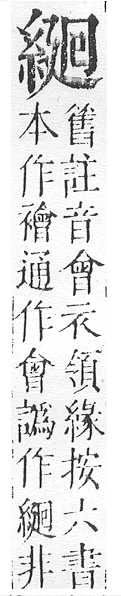 舊註音會衣領緣按六書
本作襘通作會譌作非